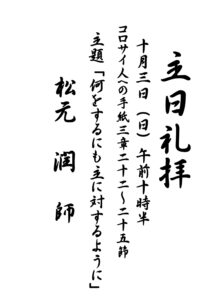 主日礼拝
十月三日（日）午前十時半
コロサイ人への手紙三章二十二～二十五節
主題「何をするにも主に対するように」
松元　潤　師